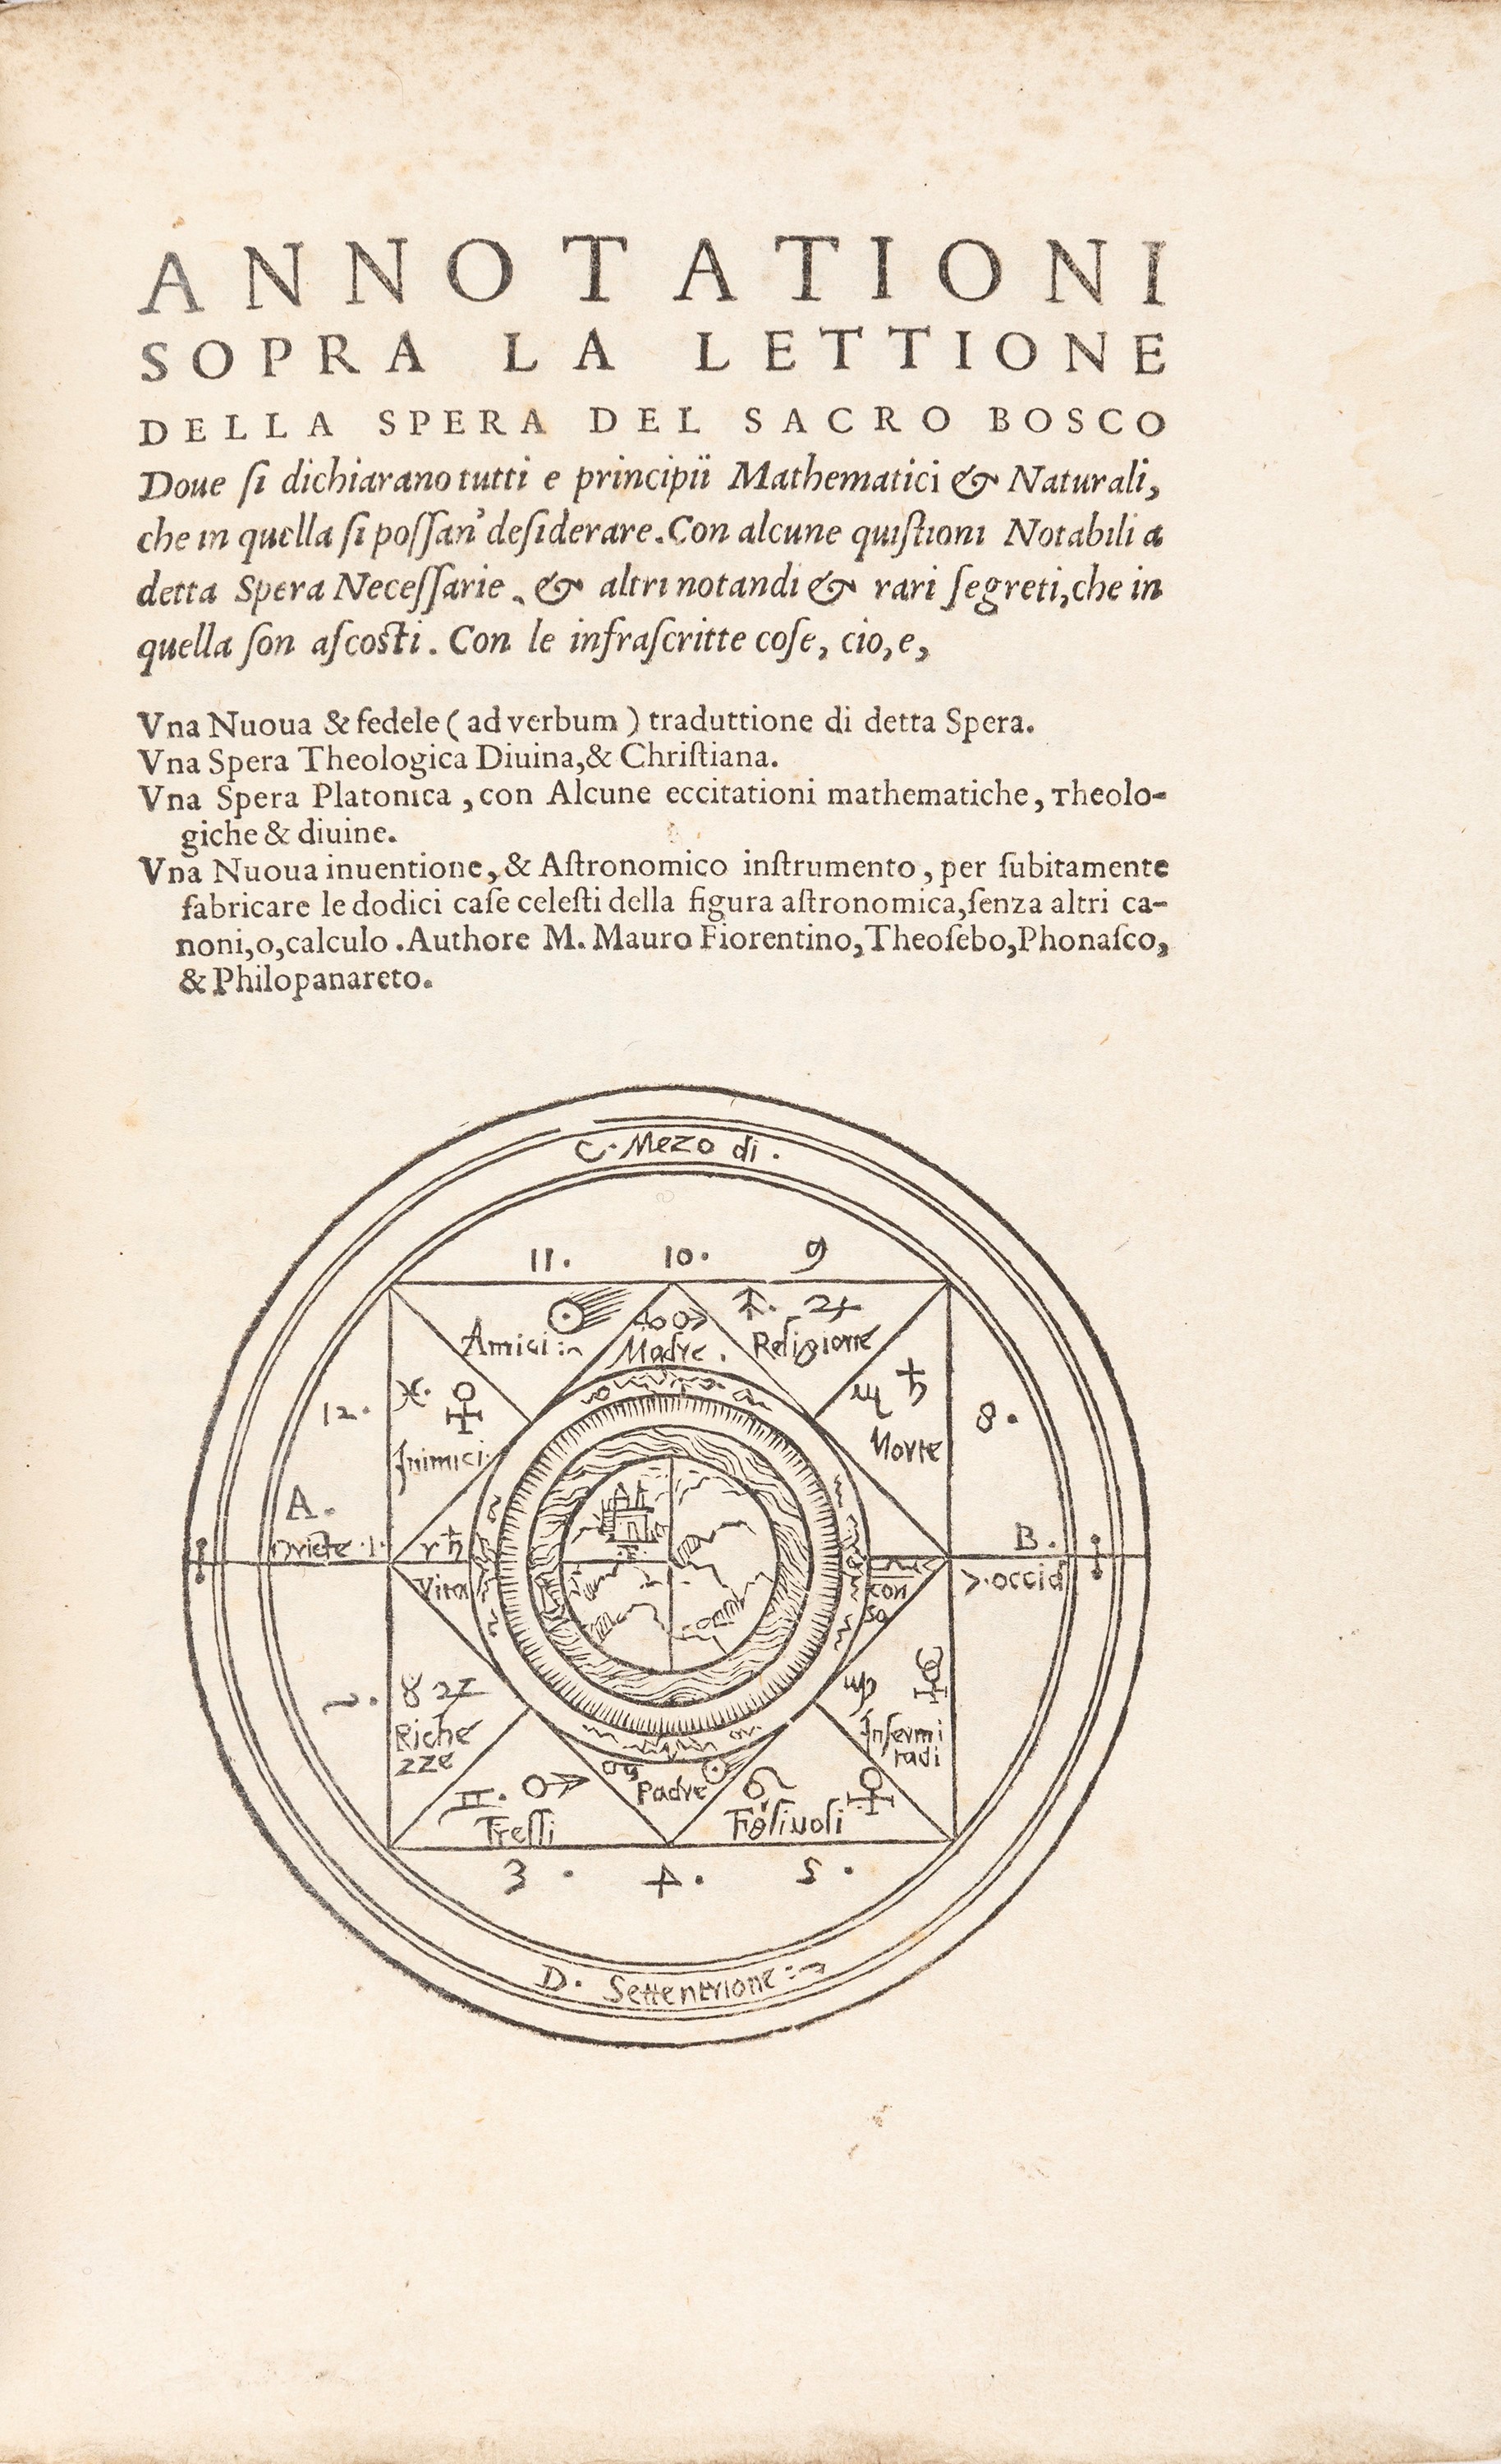 ANNOTATIONI
SOPRA LA LETTIONE
DELLA SPERA DEL SACRO BOSCO
Doue ſi dichiarano tutti e principii Mathematici & Naturali,
che in quella ſi poſſan' deſiderare. Con alcune quiſtioni Notabili a
detta Spera Neceſſarie. & altri notandi & rari ſegreti, che in
quella ſon aſcoſti. Con le infraſcritte coſe, cio, e,
Vna Nuoua & fedele ( ad verbum ) traduttione di detta Spera.
Vna Spera Theologica Diuina, & Chriſtiana.
Vna Spera Platonica, con Alcune eccitationi mathematiche, Theolo-
giche & diuine.
Vna Nuoua inuentione, & Aſtronomico inſtrumento, per ſubitamente
fabricare le dodici caſe celeſti della figura aſtronomica, ſenza altri ca-
noni, o, calculo. Authore M. Mauro Fiorentino, Theoſebo, Phonaſco,
& Philopanareto.
C. Mezo di.
11. 10. 9
♃
Amici: Madre. Religione
♓. ♀ ♏ ♄
12. 8.
Inimici. Morte
A. B.
Oriete .1. ♈ ♄ 7. occid
Vita con
sa
2. ♉ ♃ ♍ ☿
Riche
zze
Infermi
tadi
♊. ♂ ♋ ☉ ♌ ♀
Padre
Frelli Figliuoli
3. 4. 5.
D. Settentrione